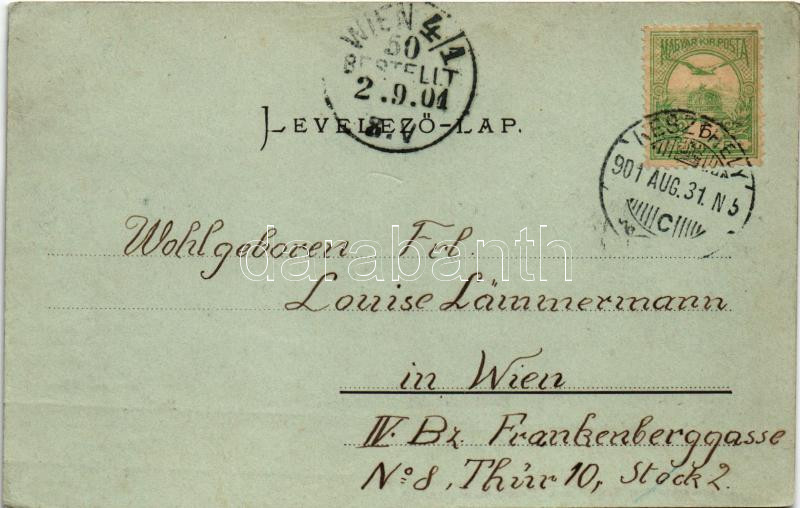 WIEN 4/1
50
BESTELLT
2.9.01
8.V
MAGYAR KIR. POSTA
LEVELEZŐ-LAP.
KESZTHELY
901 AUG. 31. N 5
C
Wohlgeboren Frl.
darabanth
Louise Lämmermann
in Wien
IV. Bz. Frankenberggasse
No 8, Thür 10, Stock 2.